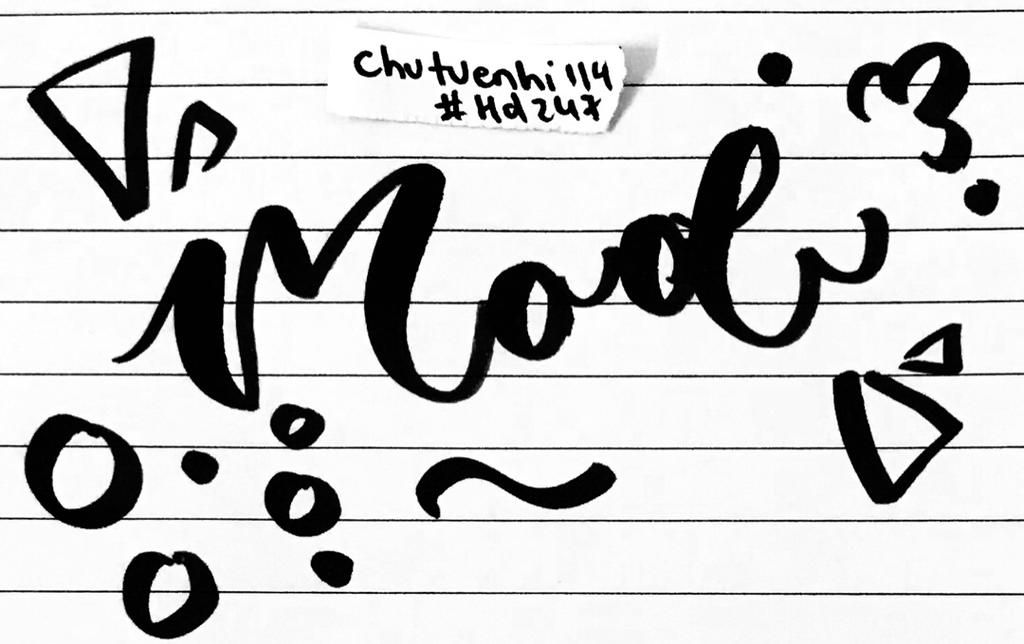 chutuenhi114
#Hd247
Mod
~